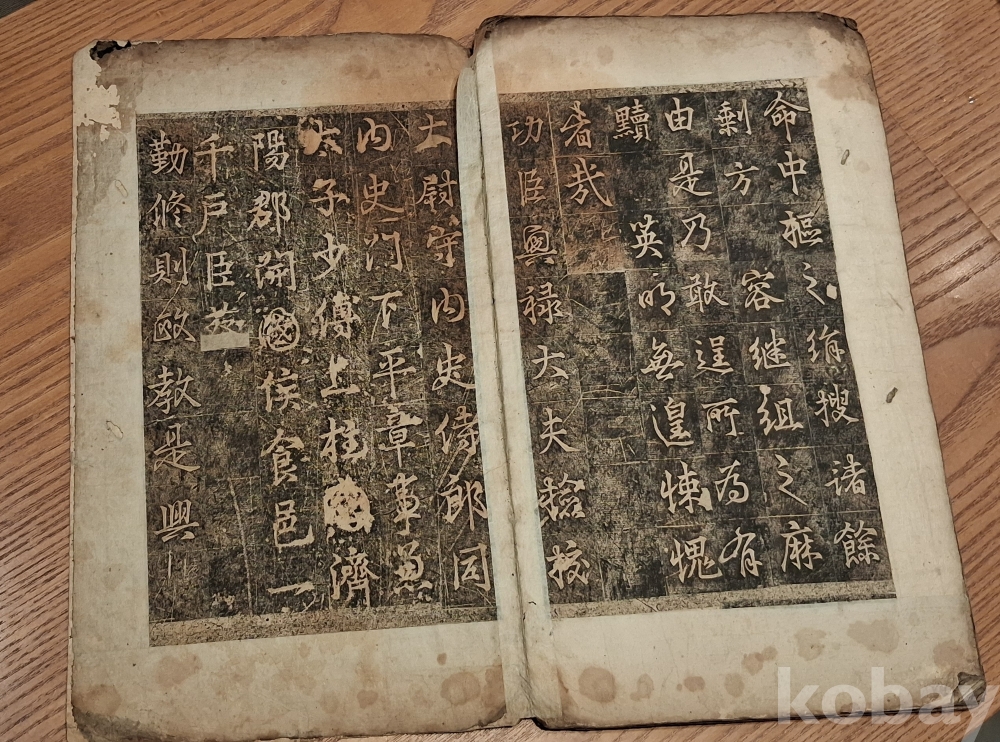 命中樞之綍搜諸餘
剩方容継組之麻
由是乃敢逞所為有
黷英明無遑悚愧
者哉
功臣興禄大夫撿挍
大尉守内史侍郎同
内史門下平章事兼
太子少傅上柱國濟
陽郡開國侯食邑一
千戶臣
勤修則敏教是興
kobay